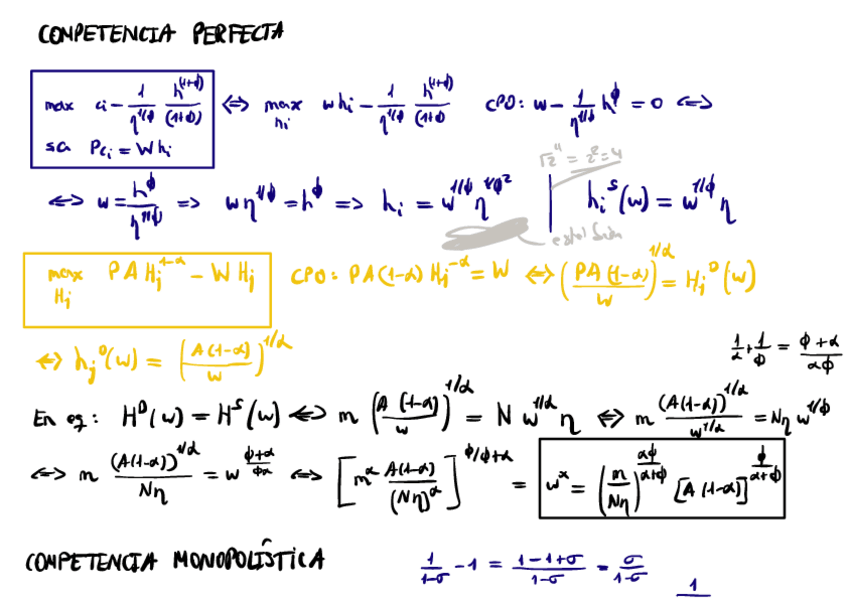 COMPETENCIA PERFECTA
max ci - 1/η^(1/ϕ) h^(1+ϕ)/(1+ϕ) ⟺ max_{hi} w hi - 1/η^(1/ϕ) h^(1+ϕ)/(1+ϕ) CPO: w - 1/η^(1/ϕ) h^ϕ = 0 ⟺
sa Pci = Whi
√2^4 = 2^2 = 4
⟺ w = h^ϕ/η^(1/ϕ) ⟹ wη^(1/ϕ) = h^ϕ ⟹ hi = w^(1/ϕ) η^(1/ϕ^2) | hi^S(w) = w^(1/ϕ) η
max_{Hj} PAHj^(1-α) - WHj CPO: PA(1-α)Hj^(-α) = W ⟺ (PA(1-α)/W)^(1/α) = Hj^D(w)
1/α + 1/ϕ = (ϕ+α)/(αϕ)
⟺ hj^D(w) = (A(1-α)/w)^(1/α)
En eq: H^D(w) = H^S(w) ⟺ m (A(1-α)/w)^(1/α) = N w^(1/α) η ⟺ m (A(1-α))^(1/α)/w^(1/α) = Nη w^(1/ϕ)
⟺ m (A(1-α))^(1/α)/Nη = w^((ϕ+α)/(ϕα)) ⟺ [m^α A(1-α)/(Nη)^α]^(ϕ/ϕ+α) = w^* = (m/Nη)^(αϕ/(α+ϕ)) [A(1-α)]^(ϕ/(α+ϕ))
COMPETENCIA MONOPOLÍSTICA 1/(1-σ) - 1 = (1-1+σ)/(1-σ) = σ/(1-σ)
1